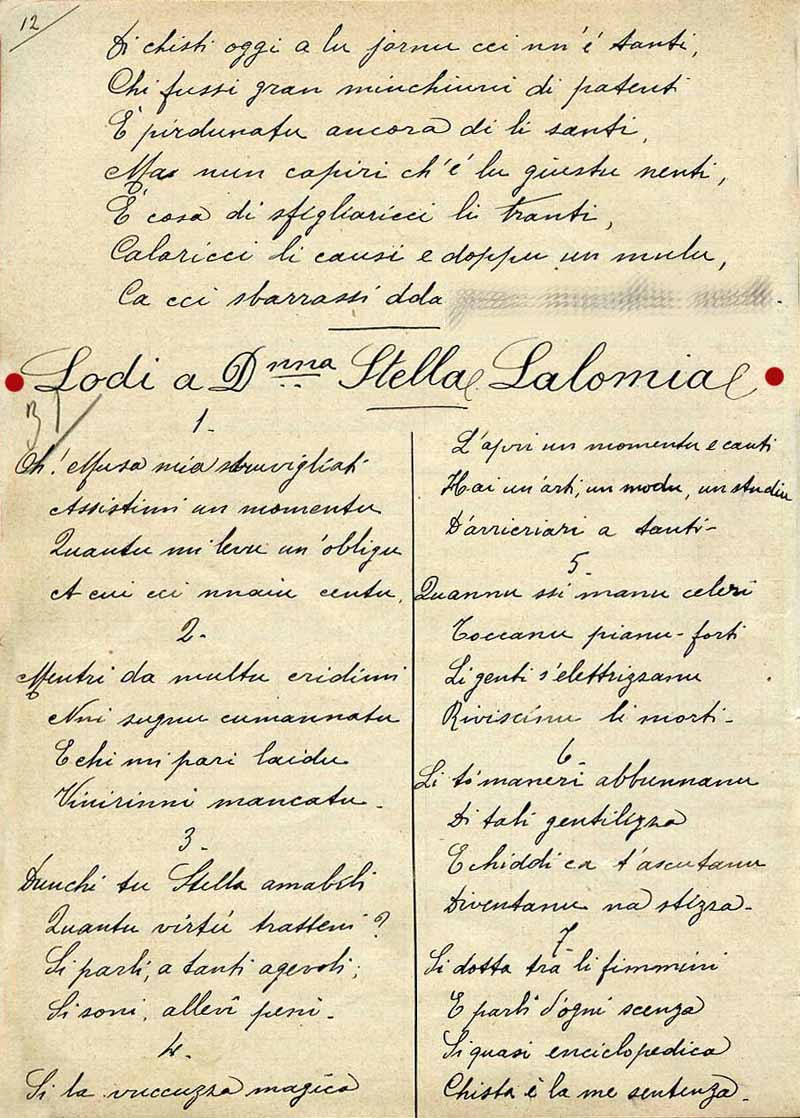 12
Di chisti oggi a lu jornu cci nn'é tanti,
Chi fussi gran minchiuni di patenti
É pirdunatu ancora di li santi,
Ma nun capiri ch'é lu giustu nenti,
É cosa di sfigliaricci li tranti,
Calaricci li causi e doppu un mulu,
Ca cci sbarrassi dda
Lodi a Dnna Stella Lalomia
1.
Oh! Musa mia struvigliati
Assistimi un momentu
Quantu mi levu un'obligu
A cui cci nnaiu centu,
2.
Mentri da multu cridimi
Nni sugnu cumannatu
E chi mi pari laidu
Vinirinni mancatu.
3.
Dunchi tu Stella amabili
Quantu virtú tratteni?
Si parli, a tanti agevoli;
Si soni, allevi peni.
4.
Si la vuccuzza magica
L'apri un momentu e canti
Hai un'arti, un modu, un studiu
D'arricriari a tanti.
5.
Quannu ssi manu celeri
Toccanu pianu-forti
Li genti s'elettrizzanu
Riviscinu li morti.
6.
Li to' maneri abbunnanu
Di tali gentilizza
E chiddi ca t'ascutanu
Diventanu na stizza.
7.
Si dotta tra li fimmini
E parli d'ogni scenza
Si quasi enciclopedica
Chista é la me sentenza.